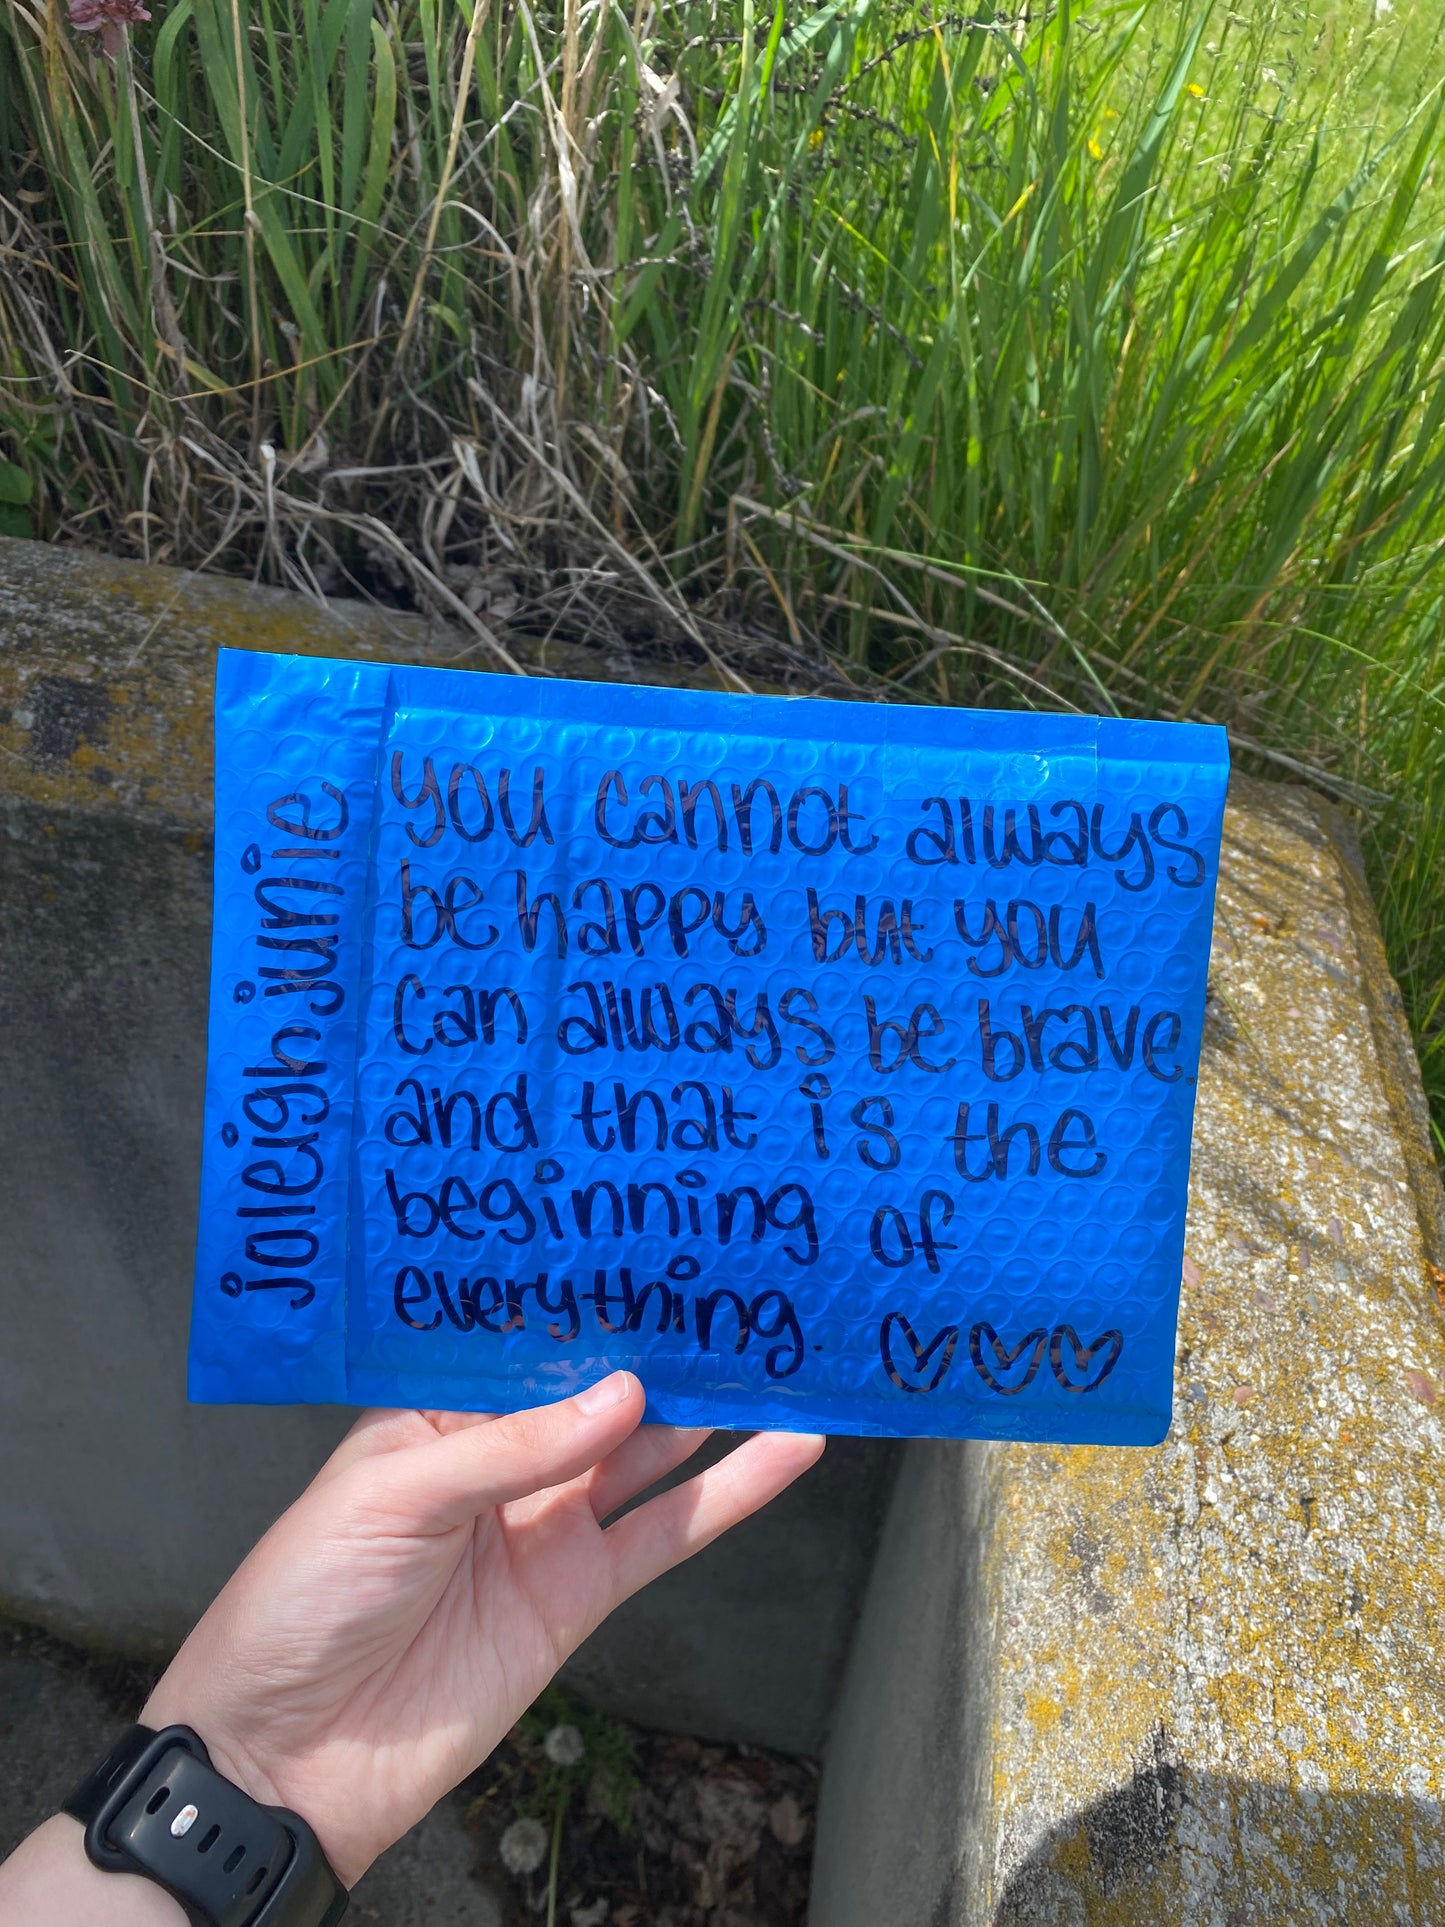 joleighjunie
you cannot always
be happy but you
can always be brave.
and that is the
beginning of
everything.